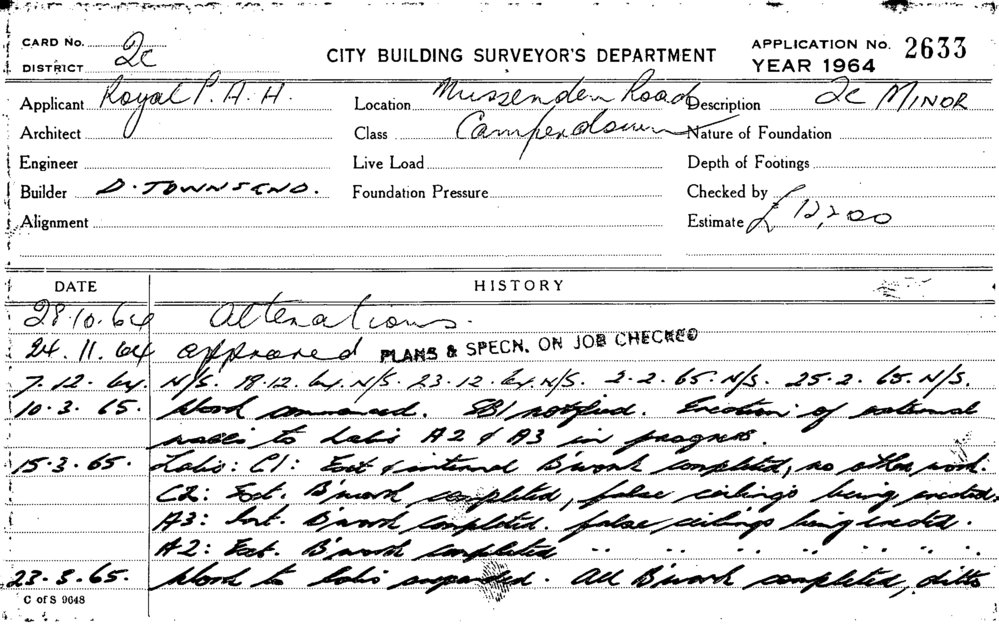 CARD No.
DISTRICT 2c
CITY BUILDING SURVEYOR'S DEPARTMENT
APPLICATION No. 2633
YEAR 1964
Applicant Royal P. A. H.
Location Missenden Road
Description 2c MINOR
Architect
Class Camperdown
Nature of Foundation
Engineer
Live Load
Depth of Footings
Builder D. TOWNSEND.
Foundation Pressure
Checked by
Alignment
Estimate £ 12,200
DATE HISTORY
28.10.64 Alterations.
24.11.64 approved PLANS & SPECN. ON JOB CHECKED
7.12.64. N/S. 18.12.64. N/S. 23.12.64. N/S. 2.2.65. N/S. 25.2.65. N/S.
10.3.65. Work commenced. SBI notified. Erection of external
walls to Labs A2 & A3 in progress.
15.3.65. Labs: C1: Ext & internal B'work completed, no other work.
C2: Ext. B'work completed, false ceilings being erected.
A3: Ext. B'work completed. false ceilings being erected.
A2: Ext. B'work completed " " " " " "
23.3.65. Work to labs suspended. All B'work completed, ditto
C of S 9648